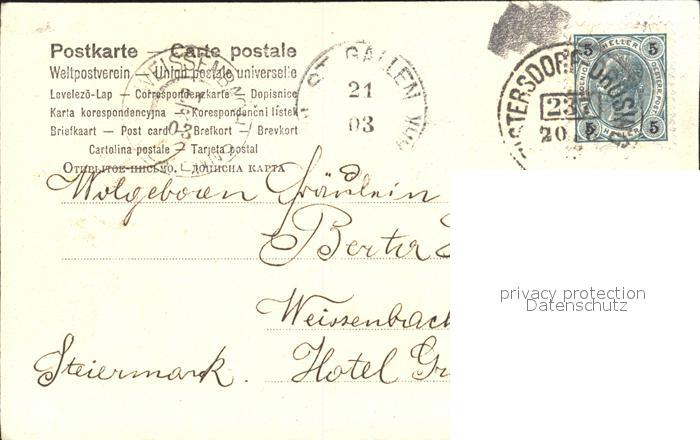 Postkarte — Carte postale
Weltpostverein — Union postale universelle
Levelező-Lap — Correspondenzkarte — Dopisnice
Karta korespondencyjna — Korespondenční lístek
Briefkaart — Post card — Brefkort — Brevkort
Cartolina postale — Tarjeta postal
Открытое письмо. — дописна карта
ST. GALLEN
21
03
WEISSENBACH
03
5 HELLER 5
5 HELLER 5
23
20
Wolgeboren Fräulein
Berta
Weissenbach
Steiermark. Hotel
privacy protection
Datenschutz